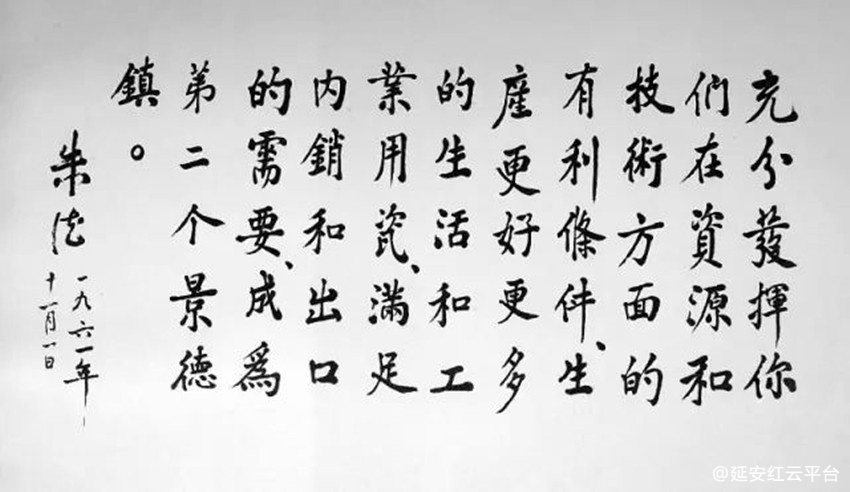 充分發揮你
們在資源和
技術方面的
有利條件、生
産更好更多
的生活和工
業用瓷、滿足
内銷和出口
的需要、成爲
第二个景德
鎮。
朱德
一九六一年
十一月一日
@延安红云平台